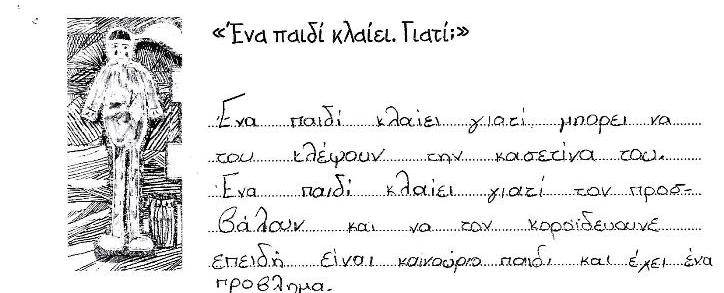 «Ένα παιδί κλαίει. Γιατί;»
Ένα παιδί κλαίει γιατί μπορει να
του κλέψουν την κασετίνα του.
Ένα παιδί κλαίει γιατί τον προσ-
βάλουν και να τον κοροϊδευουνε
επειδή είναι καινούριο παιδι και έχει ένα
προβλημα.